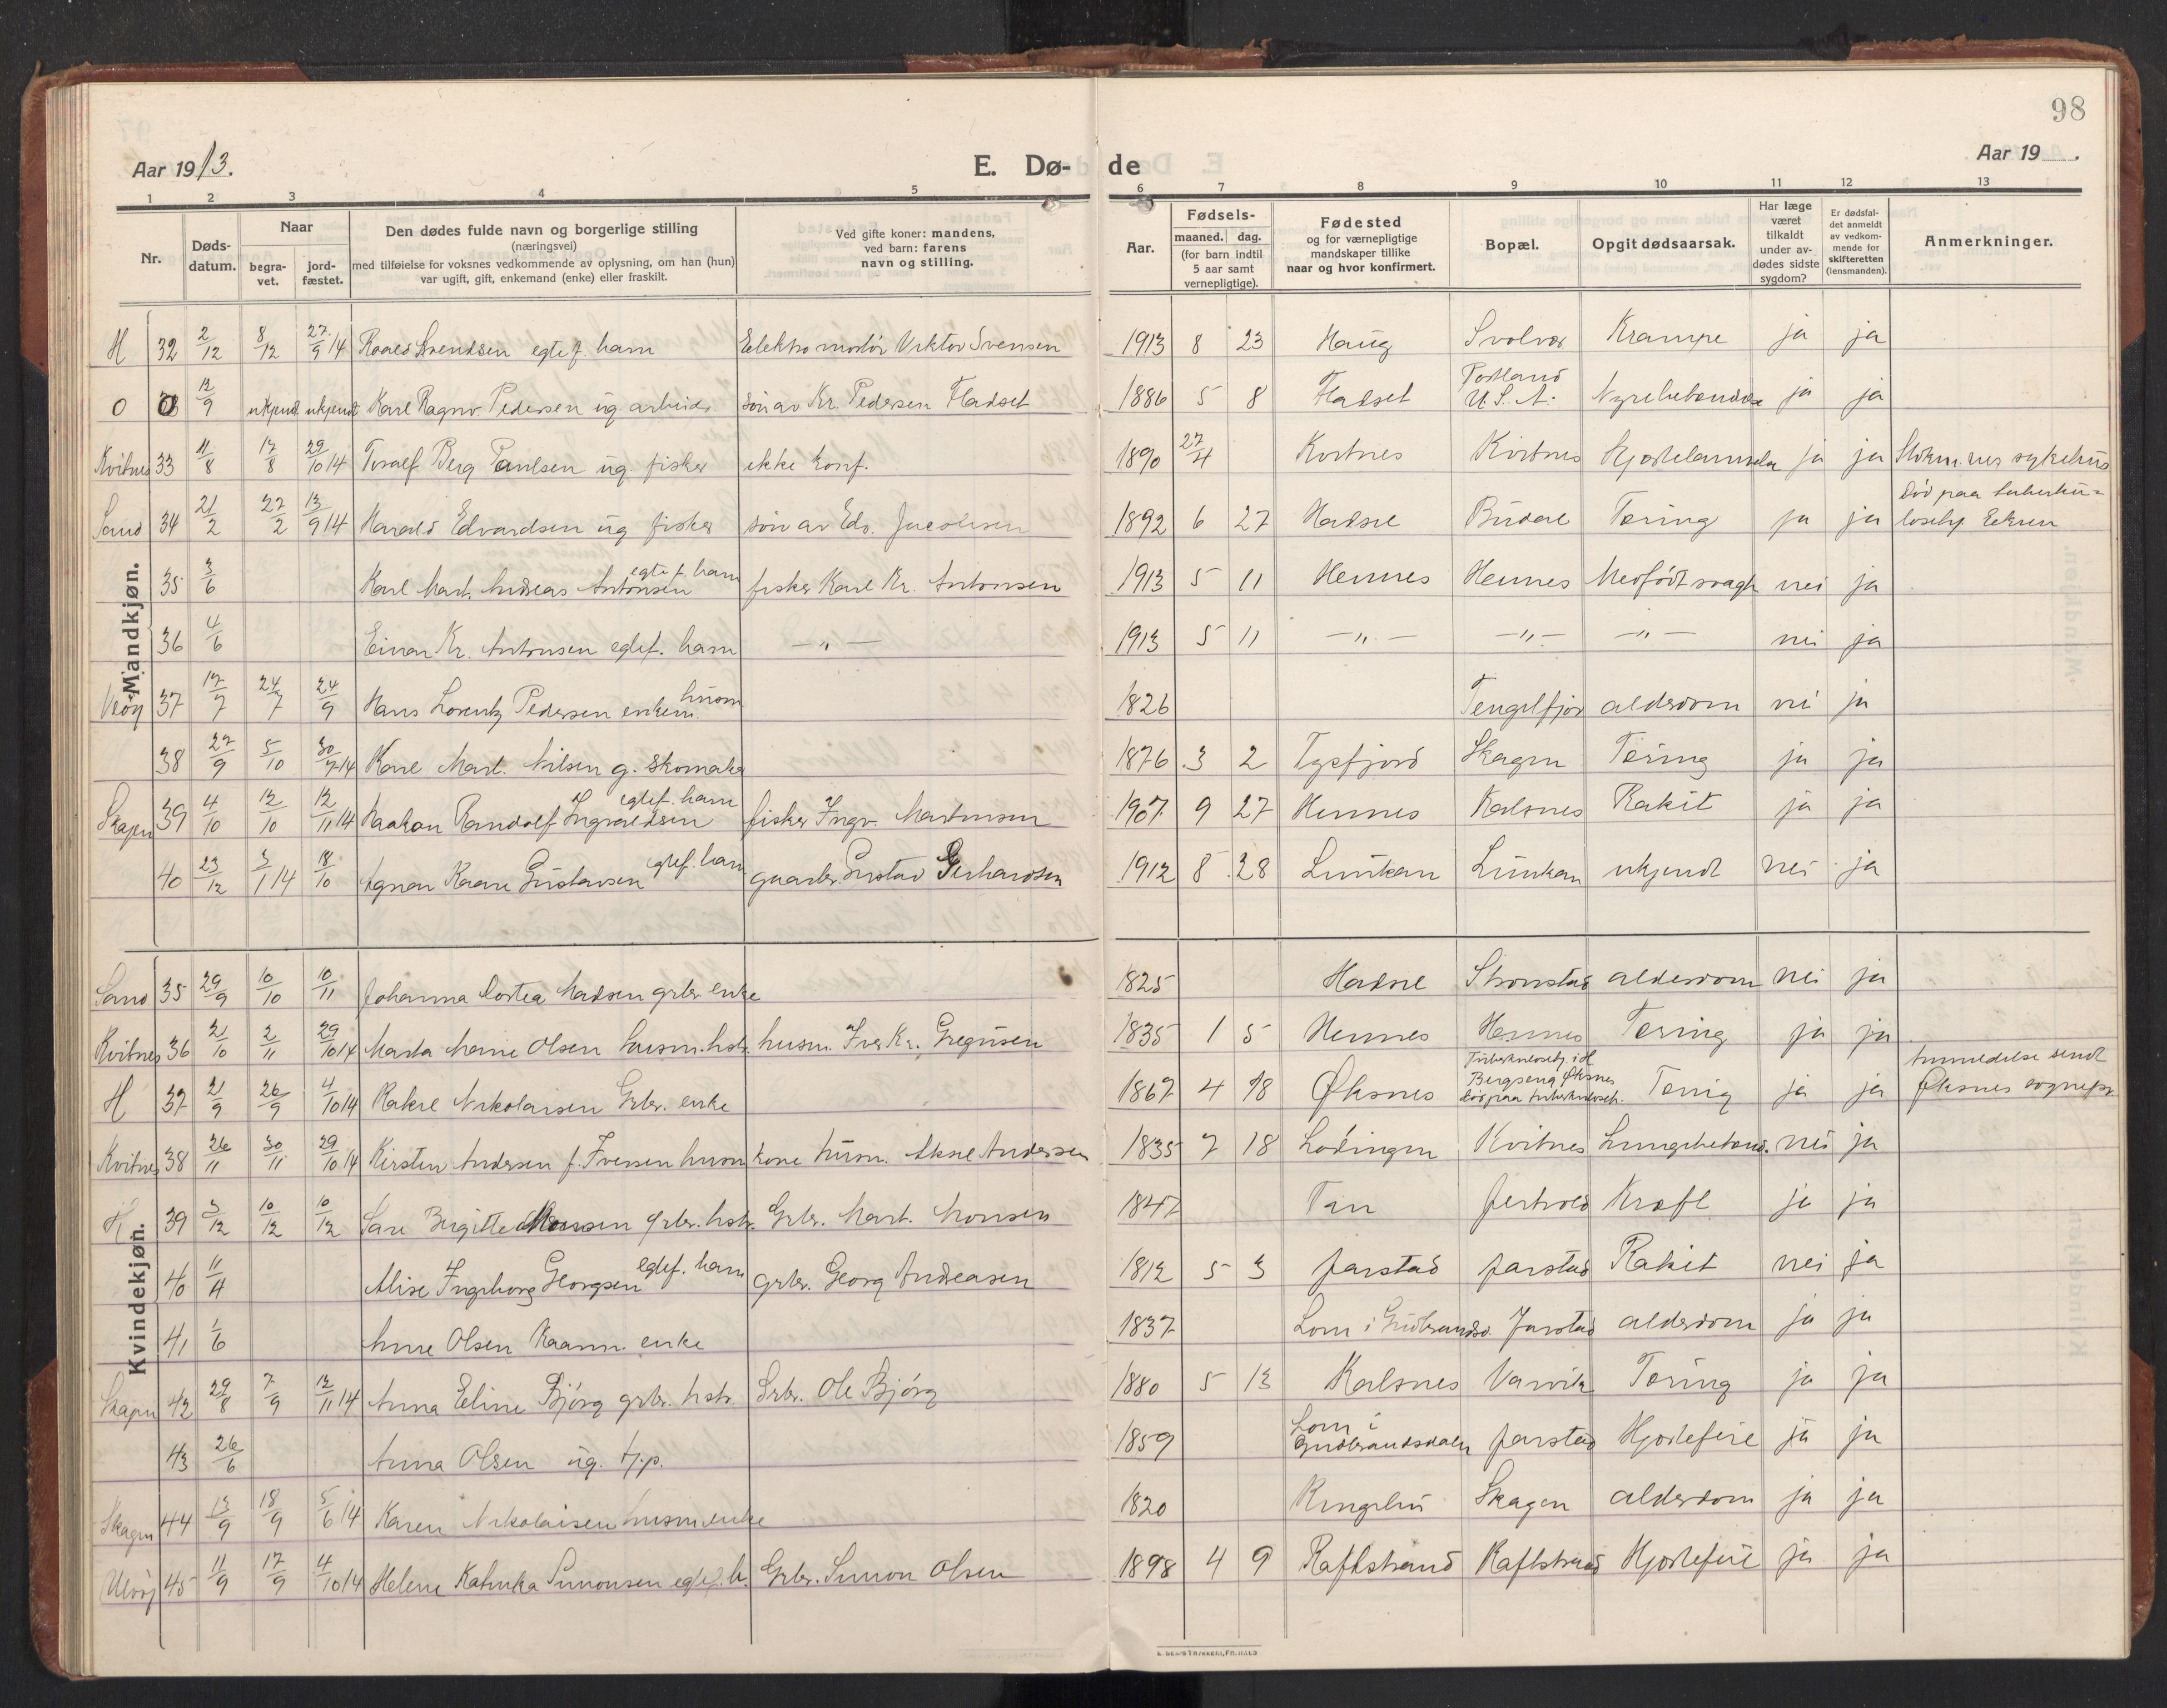 98
Aar 1913.
E. Dø- de
Aar 19 .
1 2 3 4 5 6 7 8 9 10 11 12 13
Nr.
Døds-
datum.
Naar
begra-
vet.
jord-
fæstet.
Den dødes fulde navn og borgerlige stilling
(næringsvei)
med tilføielse for voksnes vedkommende av oplysning, om han (hun)
var ugift, gift, enkemand (enke) eller fraskilt.
Ved gifte koner: mandens,
ved barn: farens
navn og stilling.
Aar.
Fødsels-
maaned. dag.
(for barn indtil
5 aar samt
vernepligtige).
Fødested
og for værnepligtige
mandskaper tillike
naar og hvor konfirmert.
Bopæl.
Opgit dødsaarsak.
Har læge
været
tilkaldt
under av-
dødes sidste
sygdom?
Er dødsfal-
det anmeldt
av vedkom-
mende for
skifteretten
(lensmanden).
Anmerkninger.
Mandkjøn.
H 32 2/12 8/12 27/9 14 Svendsen egtef. barn Elektromontør Viktor Svensen 1913 8 23 Haug Svolvær Krampe ja ja
O 0 12/9 ukjendt ukjendt Karl Ragnv. Pedersen ug arbeids. søn av Kr. Pedersen Fladset 1886 5 8 Fladset Portland U.S.A. Nyrebetændelse ja ja
Kvitnes 33 11/8 17/8 29/10 14 Toralf Berg Paulsen ug. fisker ikke konf. 1890 27/4 Kvitnes Kvitnes Hjertelammelse ja ja Stokm.nes sykehus
Sand 34 21/2 27/2 13/9 14 Harald Edvardsen ug fisker søn av Edv. Jacobsen 1892 6 27 Hadsel Budal Tæring ja ja Død paa tuberku-
losehj. Eknen
35 3/6 Karl Mart. Andreas Antonsen egtef. barn fisker Karl Kr. Antonsen 1913 5 11 Hennes Hennes Medfødt svagh nei ja
36 4/6 Einar Kr. Antonsen egtef. barn —"— 1913 5 11 —"— —"— —"— nei ja
37 17/7 24/7 24/9 Hans Lorentz Pedersen enkem. husm 1826 Tengelfjor alderdom nei ja
38 27/9 5/10 30/7 14 Karl Mart. Nilsen g. skomaker 1876 3 2 Skagen Tæring ja ja
Skagen 39 4/10 12/10 12/11 14 Haakon Randolf Ingvaldsen egtef. barn fisker Ingv. Martinsen 1907 9 27 Hennes Kalsnes Rakit ja ja
40 23/12 3/1 14 18/10 Agnar Kaare Gustavsen egtef. barn gaarbr. Gustav Gerhardsen 1912 8 28 Lunkan Lunkan ukjendt nei ja
Kvindekjøn.
Sand 35 29/9 10/10 10/11 Johanna Dortea Madsen grbr. enke 1825 Hadsel Stronstad alderdom nei ja
Kvitnes 36 21/10 2/11 29/10 14 Marta Marie Olsen husm. hstr. husm. Iver Kr. Gregusen 1835 1 5 Hennes Hennes Tæring ja ja
H 37 21/9 26/9 4/10 14 Rakel Nikolaisen Grbr. enke 1867 4 18 Øksnes Tuberkulosehj. i H Bergseng Øksnes død paa tuberkuloseh. Tæring ja ja Anmeldelse sendt
Øksnes sognepr
Kvitnes 38 26/11 30/11 29/10 14 Kirsten Andersen f. Iversen husm kone husm. Aksel Andersen 1835 7 18 Lødingen Kvitnes Lungebetænd. nei ja
H 39 3/12 10/12 10/12 Sara Birgitte Monsen grbr. hstr. Grbr. Mart. Monsen 1847 Kræft ja ja
40 11/4 Alise Ingeborg Georgsen egtef. barn grbr. Georg Andreasen 1912 5 3 Jarstad Jarstad Rakit nei ja
41 1/6 Anne Olsen Kaarm. enke 1837 Lom i Gudbrandsd. Jarstad alderdom ja ja
Skagen 42 29/8 7/9 12/11 14 Anna Eline Bjørg grbr. hstr. Grbr. Ole Bjørg 1880 5 13 Kalsnes Varvik Tæring ja ja
43 26/6 Anna Olsen ug. tj.p. 1859 Lom i Gudbrandsdalen Jarstad Hjertefeil ja ja
Skagen 44 13/9 18/9 5/6 14 Karen Nikolaisen husm.enke 1820 Ringebu Skagen alderdom ja ja
Ulvøy 45 11/9 17/9 4/10 14 Helene Katinka Simonsen egtef. b. Grbr. Simon Olsen 1898 4 9 Raftstrand Raftstrand Hjertefeil ja ja